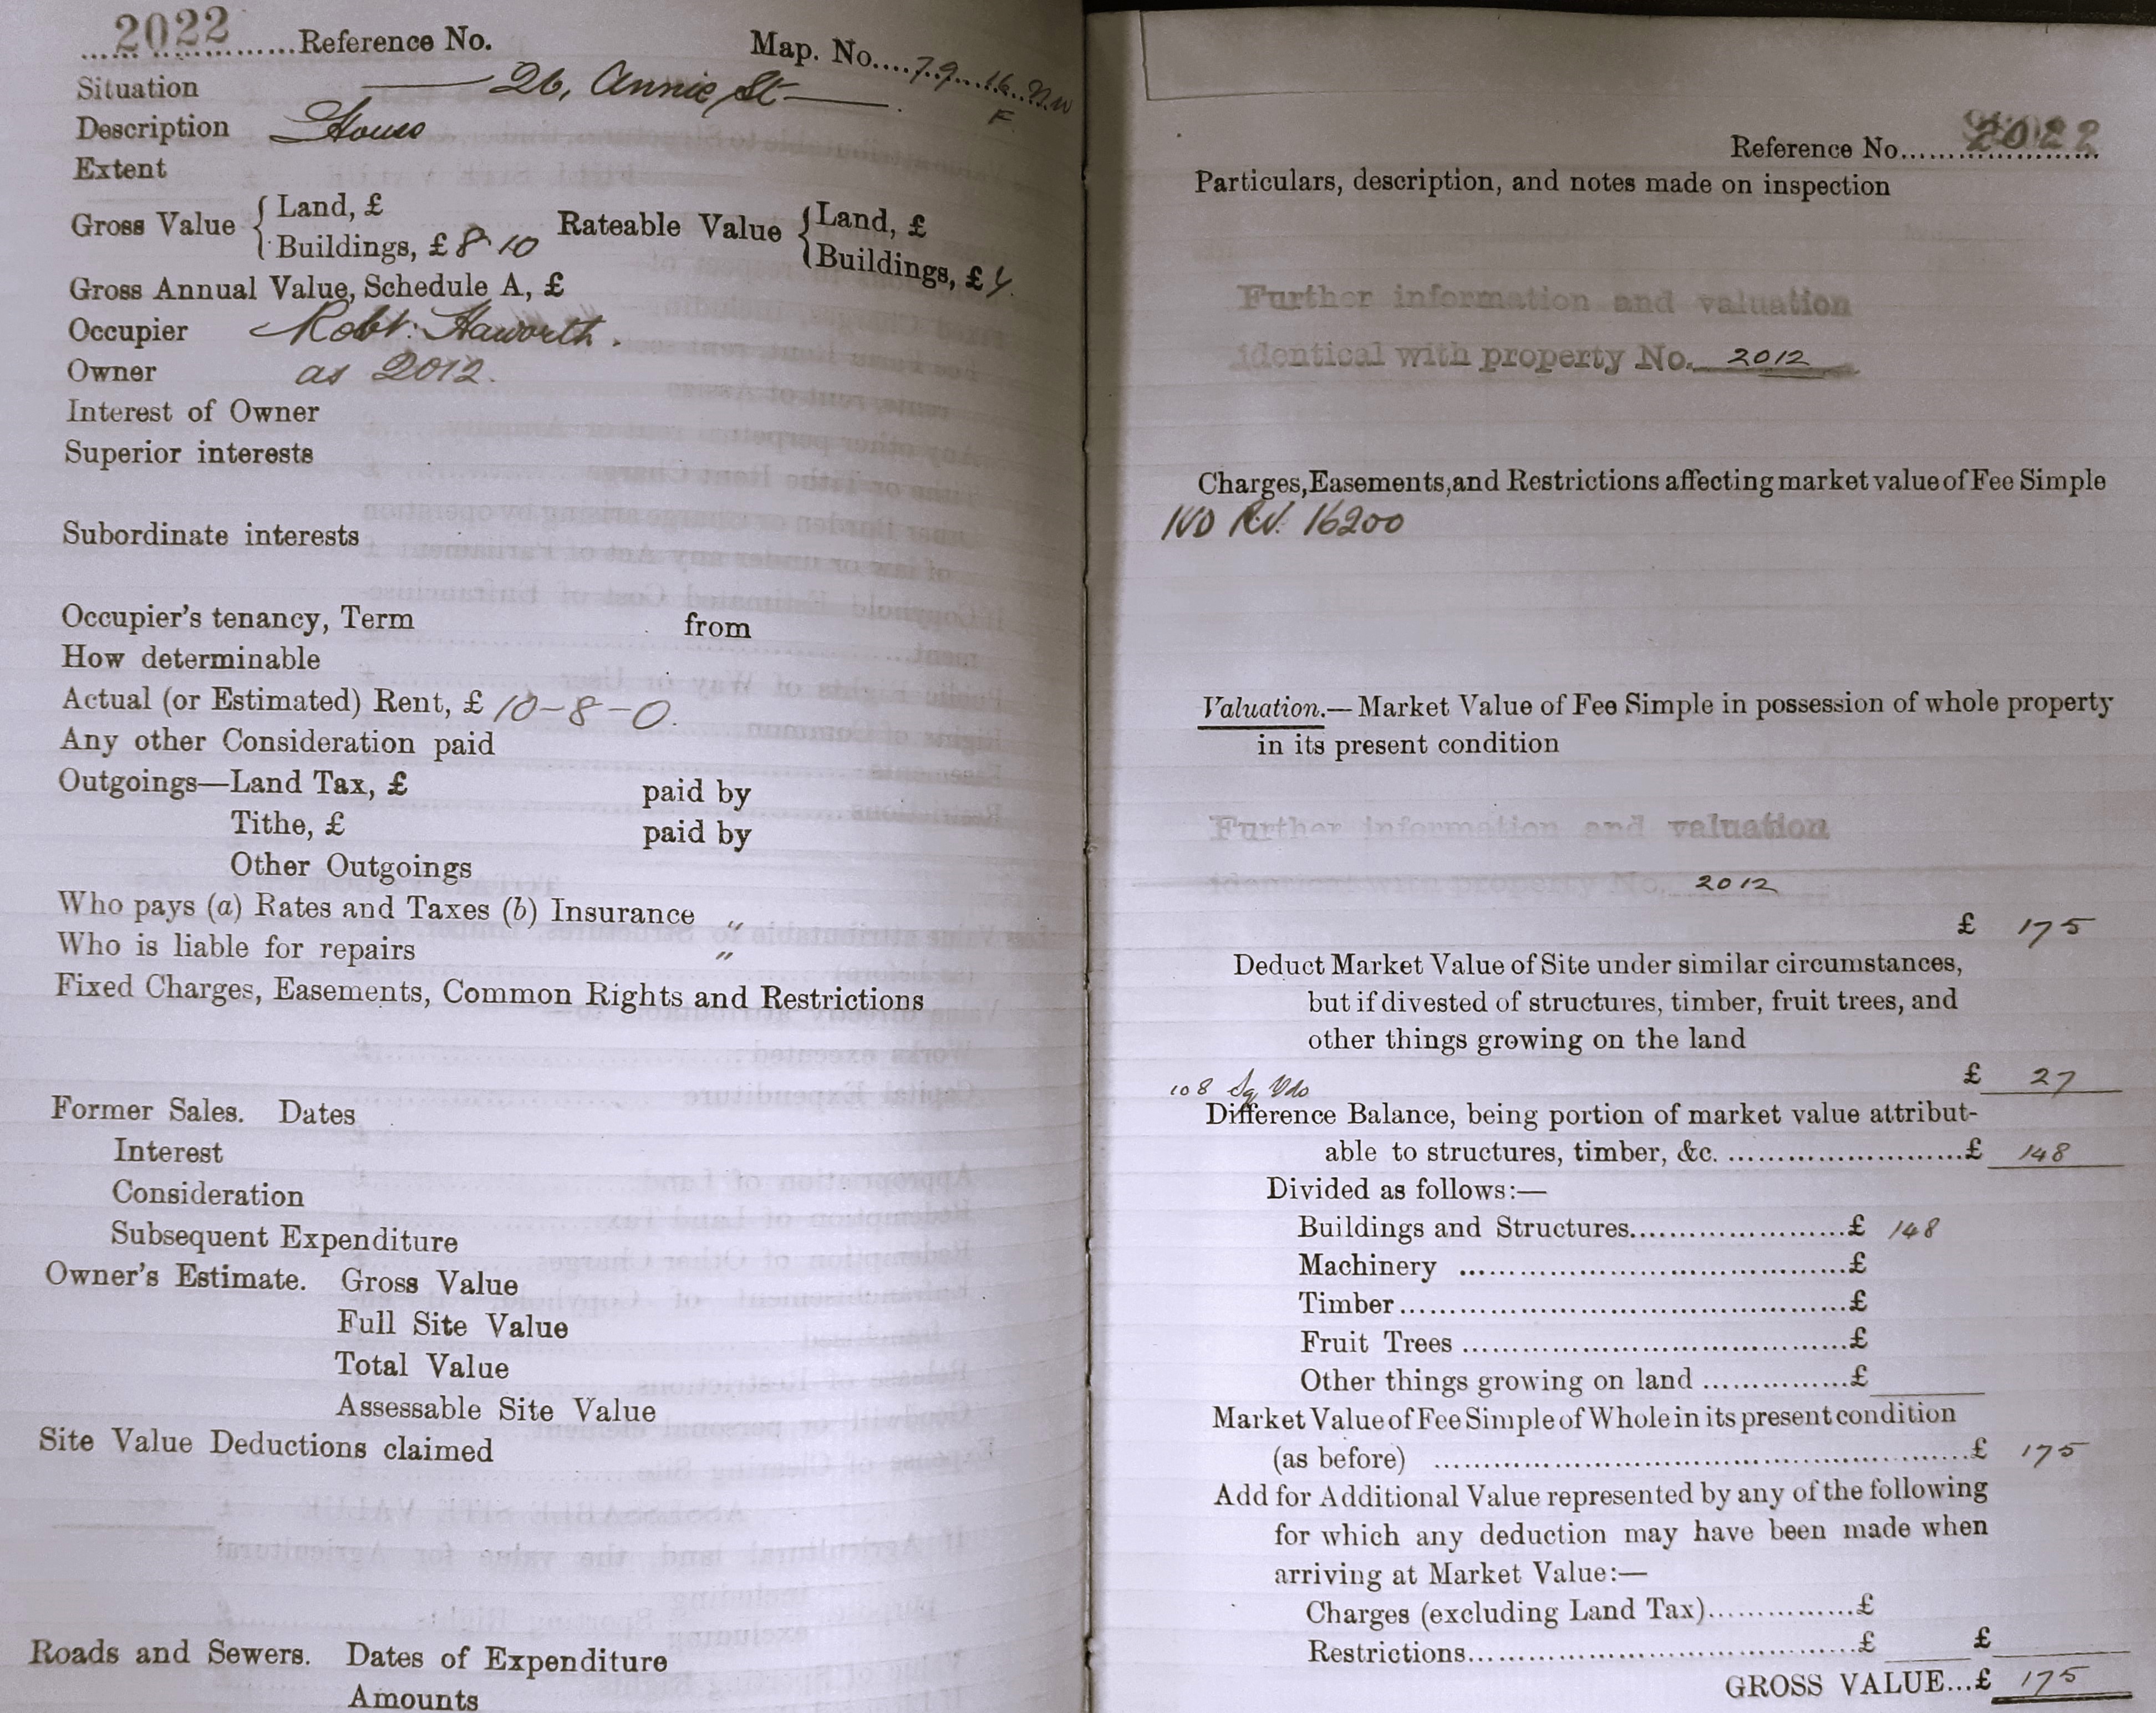 2022 Reference No. Map. No. 79.16.NW
F
Situation 26, Annie St
Description House
Extent
Gross Value { Land, £ Rateable Value { Land, £
Buildings, £ 8-10 Buildings, £
Gross Annual Value, Schedule A, £
Occupier Robt. Haworth.
Owner as 2012.
Interest of Owner
Superior interests
Subordinate interests
Occupier's tenancy, Term from
How determinable
Actual (or Estimated) Rent, £ 10-8-0.
Any other Consideration paid
Outgoings—Land Tax, £ paid by
Tithe, £ paid by
Other Outgoings
Who pays (a) Rates and Taxes (b) Insurance "
Who is liable for repairs "
Fixed Charges, Easements, Common Rights and Restrictions
Former Sales. Dates
Interest
Consideration
Subsequent Expenditure
Owner's Estimate. Gross Value
Full Site Value
Total Value
Assessable Site Value
Site Value Deductions claimed
Roads and Sewers. Dates of Expenditure
Amounts
Reference No. 2022
Particulars, description, and notes made on inspection
Further information and valuation
identical with property No. 2012
Charges, Easements, and Restrictions affecting market value of Fee Simple
16200
Valuation.— Market Value of Fee Simple in possession of whole property
in its present condition
Further information and valuation
identical with property No. 2012
£ 175
Deduct Market Value of Site under similar circumstances,
but if divested of structures, timber, fruit trees, and
other things growing on the land
£ 27
108 Sq Yds
Difference Balance, being portion of market value attribut-
able to structures, timber, &c. £ 148
Divided as follows:—
Buildings and Structures £ 148
Machinery £
Timber £
Fruit Trees £
Other things growing on land £
Market Value of Fee Simple of Whole in its present condition
(as before) £ 175
Add for Additional Value represented by any of the following
for which any deduction may have been made when
arriving at Market Value:—
Charges (excluding Land Tax) £
Restrictions £ £
GROSS VALUE...£ 175